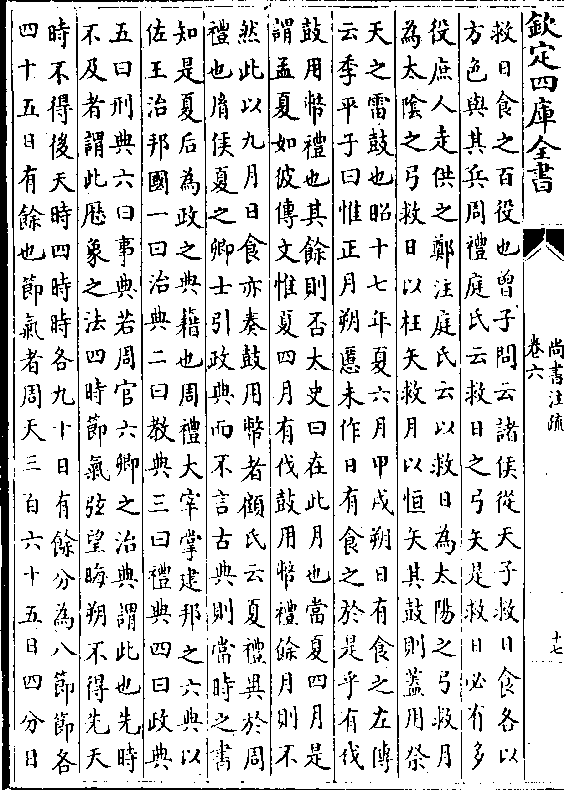 欽定四庫全書
尚書注疏
卷六
十七
救日食之百役也曾子問云諸侯從天子救日食各以
方色與其兵周禮庭氏云救日之弓矢是救日必有多
役庶人走供之鄭注庭氏云以救日為太陽之弓救月
為太陰之弓救日以枉矢救月以恒矢其鼓則蓋用祭
天之雷鼓也昭十七年夏六月甲戌朔日有食之左傳
云季平子曰惟正月朔慝未作日有食之於是乎有伐
鼓用幣禮也其餘則否太史曰在此月也當夏四月是
謂孟夏如彼傳文惟夏四月有伐鼓用幣禮餘月則不
然此以九月日食亦奏鼓用幣者顧氏云夏禮異於周
禮也胤侯夏之卿士引政典而不言古典則當時之書
知是夏后為政之典籍也周禮大宰掌建邦之六典以
佐王治邦國一曰治典二曰教典三曰禮典四曰政典
五曰刑典六曰事典若周官六卿之治典謂此也先時
不及者謂此歷象之法四時節氣弦望晦朔不得先天
時不得後天時四時時各九十日有餘分為八節節各
四十五日有餘也節氣者周天三百六十五日四分日